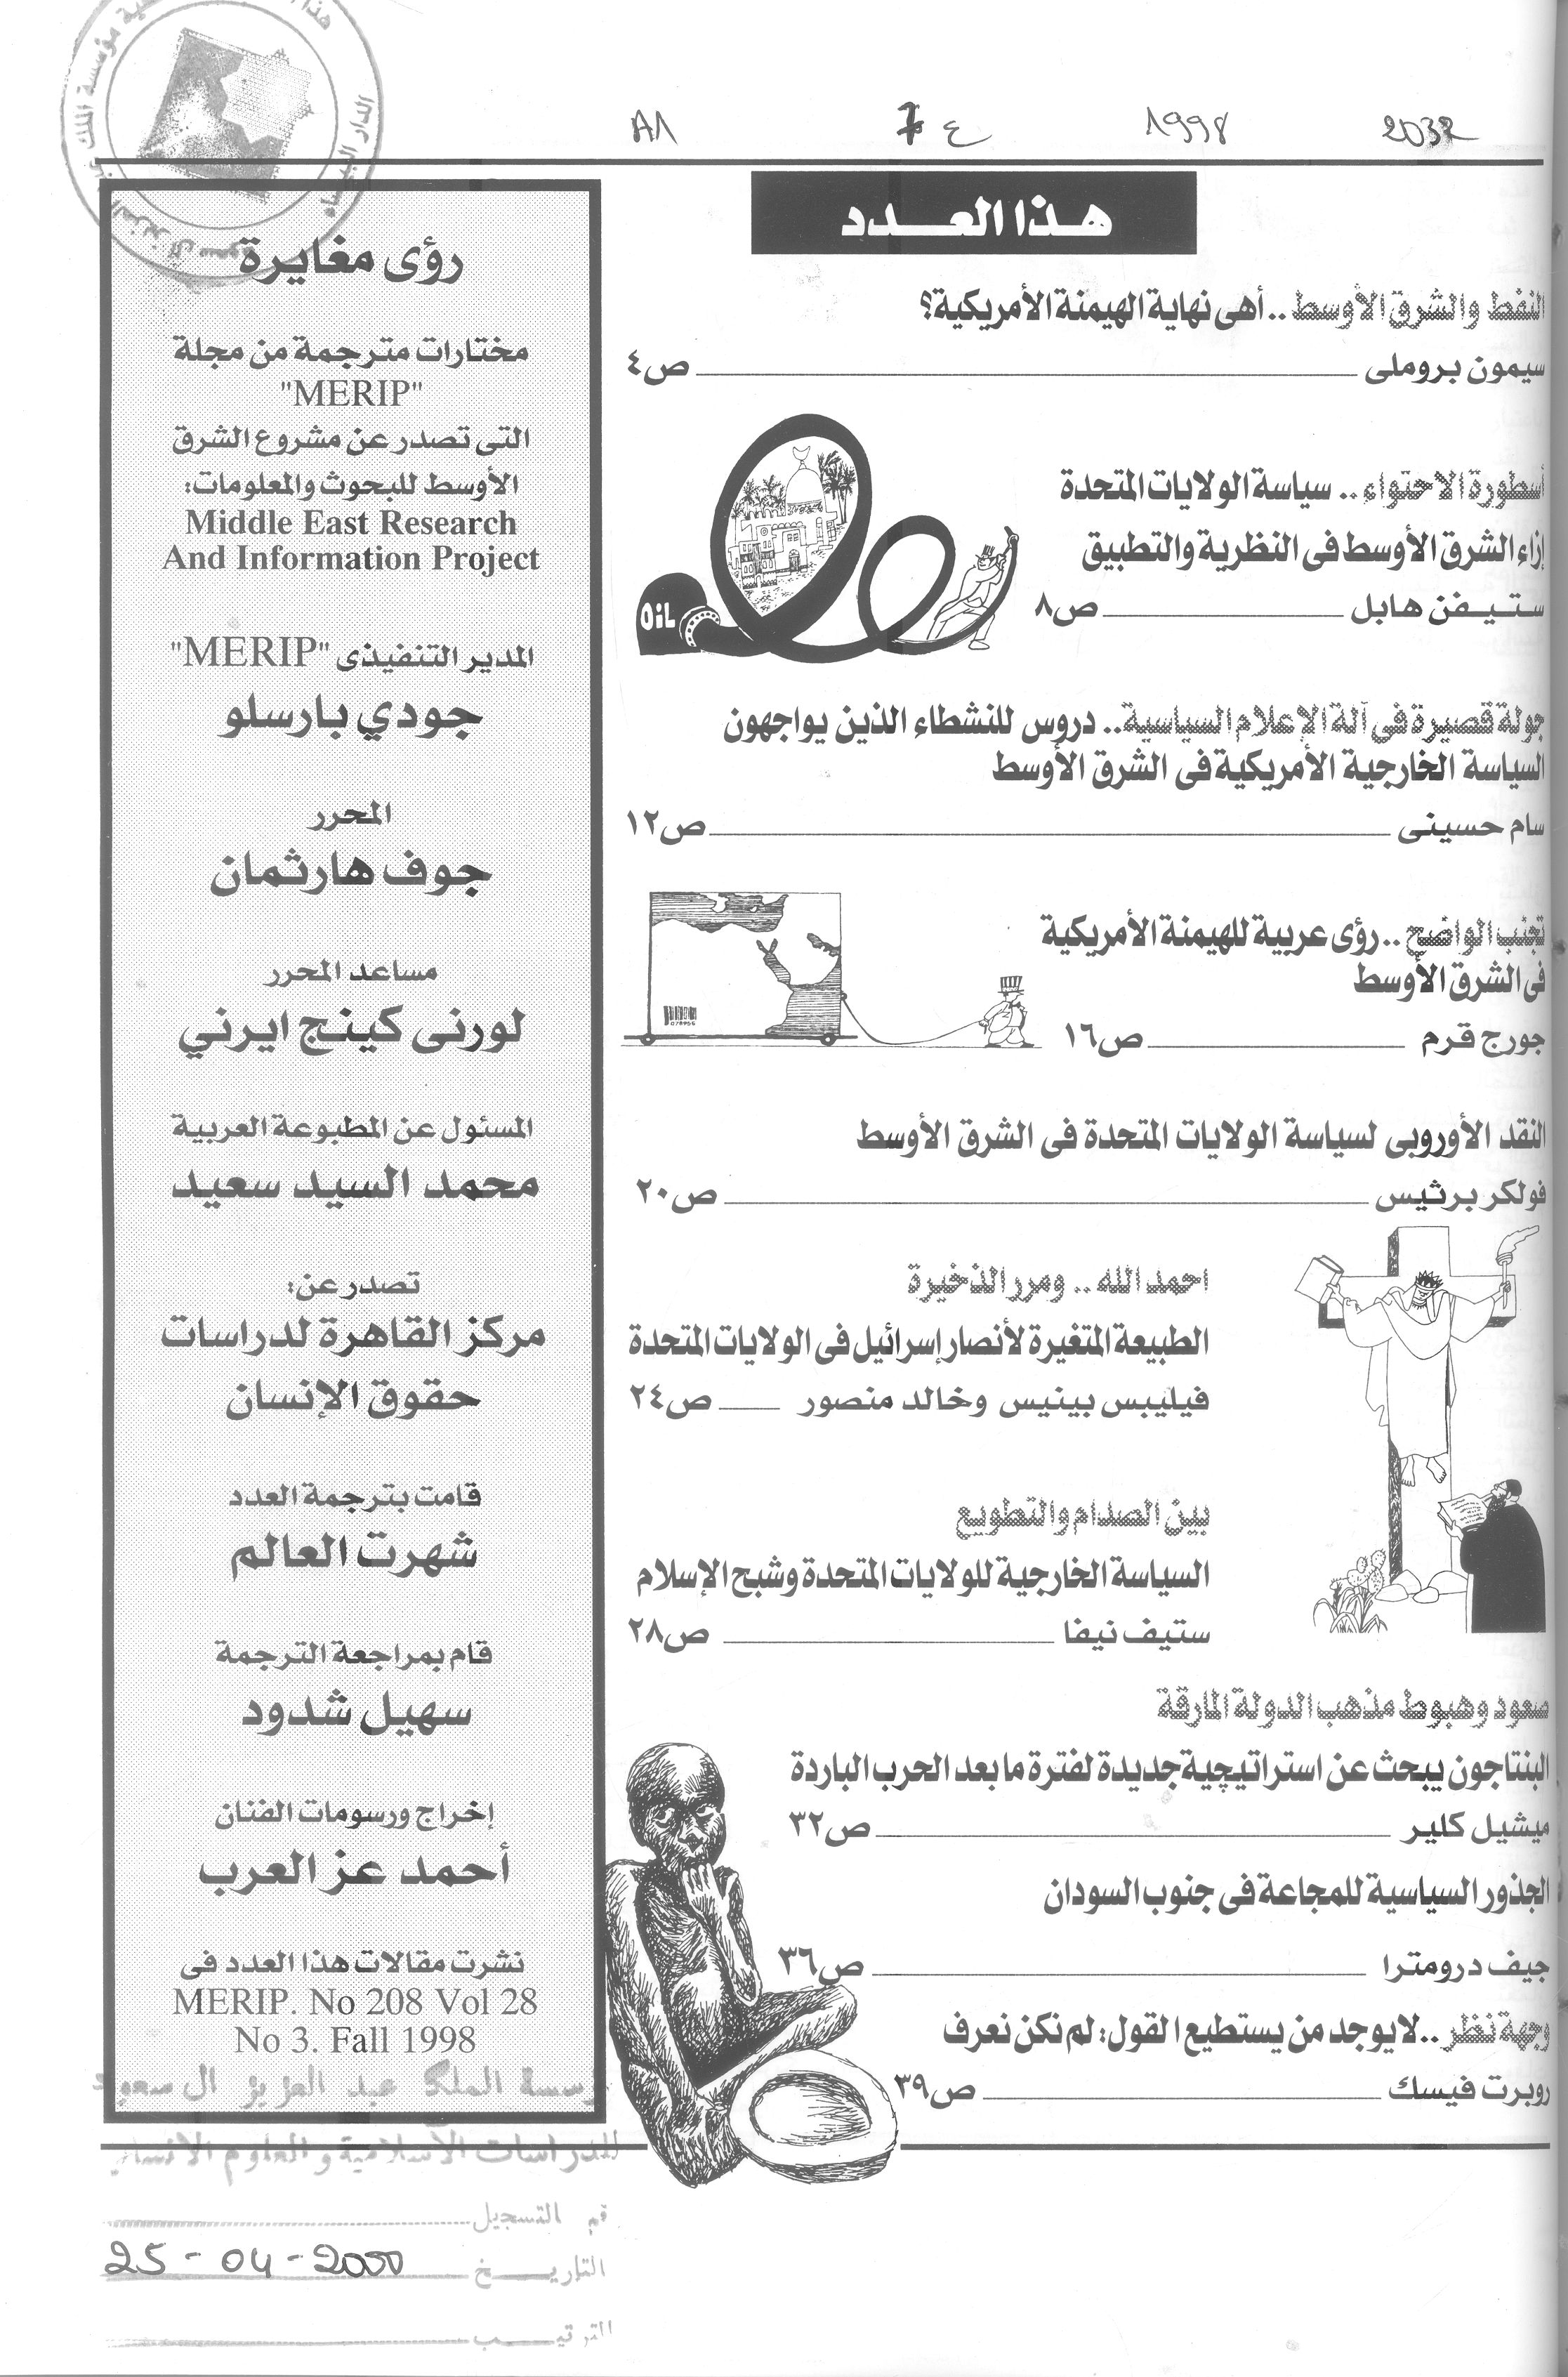 2032
1998
ع 7
A1
هذا العدد
النفط والشرق الأوسط .. أهى نهاية الهيمنة الأمريكية؟
سيمون بروملى ص٤
أسطورة الاحتواء .. سياسة الولايات المتحدة
إزاء الشرق الأوسط فى النظرية والتطبيق
ستيفن هابل ص٨
OIL
جولة قصيرة فى آلة الإعلام السياسية.. دروس للنشطاء الذين يواجهون
السياسة الخارجية الأمريكية فى الشرق الأوسط
سام حسينى ص١٢
تجنب الواضح .. رؤى عربية للهيمنة الأمريكية
فى الشرق الأوسط
جورج قرم ص١٦
النقد الأوروبى لسياسة الولايات المتحدة فى الشرق الأوسط
فولكر برثيس ص٢٠
احمد الله .. ومرر الذخيرة
الطبيعة المتغيرة لأنصار إسرائيل فى الولايات المتحدة
فيليبس بينيس وخالد منصور ص٢٤
بين الصدام والتطويع
السياسة الخارجية للولايات المتحدة وشبح الإسلام
ستيف نيفا ص٢٨
صعود وهبوط مذهب الدولة المارقة
البنتاجون يبحث عن استراتيجية جديدة لفترة ما بعد الحرب الباردة
ميشيل كلير ص٣٢
الجذور السياسية للمجاعة فى جنوب السودان
جيف درومترا ص٣٦
وجهة نظر .. لا يوجد من يستطيع القول: لم نكن نعرف
روبرت فيسك ص٣٩
رؤى مغايرة
مختارات مترجمة من مجلة
"MERIP"
التى تصدر عن مشروع الشرق
الأوسط للبحوث والمعلومات:
Middle East Research
And Information Project
المدير التنفيذى "MERIP"
جودي بارسلو
المحرر
جوف هارثمان
مساعد المحرر
لورنى كينج ايرني
المسئول عن المطبوعة العربية
محمد السيد سعيد
تصدر عن:
مركز القاهرة لدراسات
حقوق الإنسان
قامت بترجمة العدد
شهرت العالم
قام بمراجعة الترجمة
سهيل شدود
إخراج ورسومات الفنان
أحمد عز العرب
نشرت مقالات هذا العدد فى
MERIP. No 208 Vol 28
No 3. Fall 1998
الملك عبد العزيز ال سعود
للدراسات الاسلامية و العلوم الانسانية
التسجيل
التاريخ 25-04-2000
الترتيب